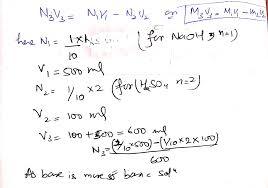 N₃V₃ = N₁V₁ - N₂V₂ or M₃V₃ = M₁V₁ - M₂V₂
here N₁ = 1/10 × 1 (for NaOH, n=1)
V₁ = 500 ml
N₂ = 1/10 × 2 (for H₂SO₄ n=2)
V₂ = 100 ml
V₃ = 100 + 500 = 600 ml
N₃ = (1/10 × 500) - (1/10 × 2 × 100) / 600
As base is more so basic solⁿ